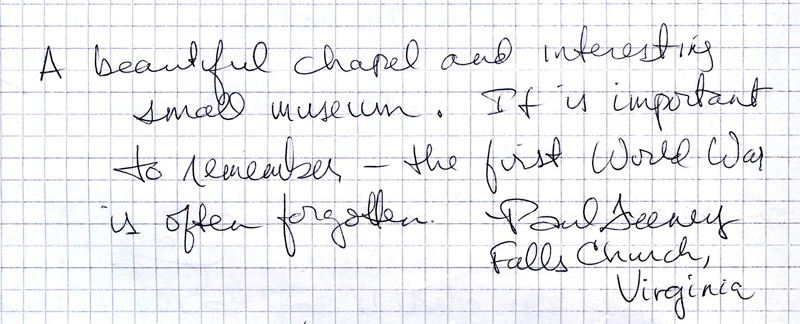 A beautiful chapel and interesting
small museum. It is important
to remember – the first World War
is often forgotten. Paul Feeney
Falls Church,
Virginia